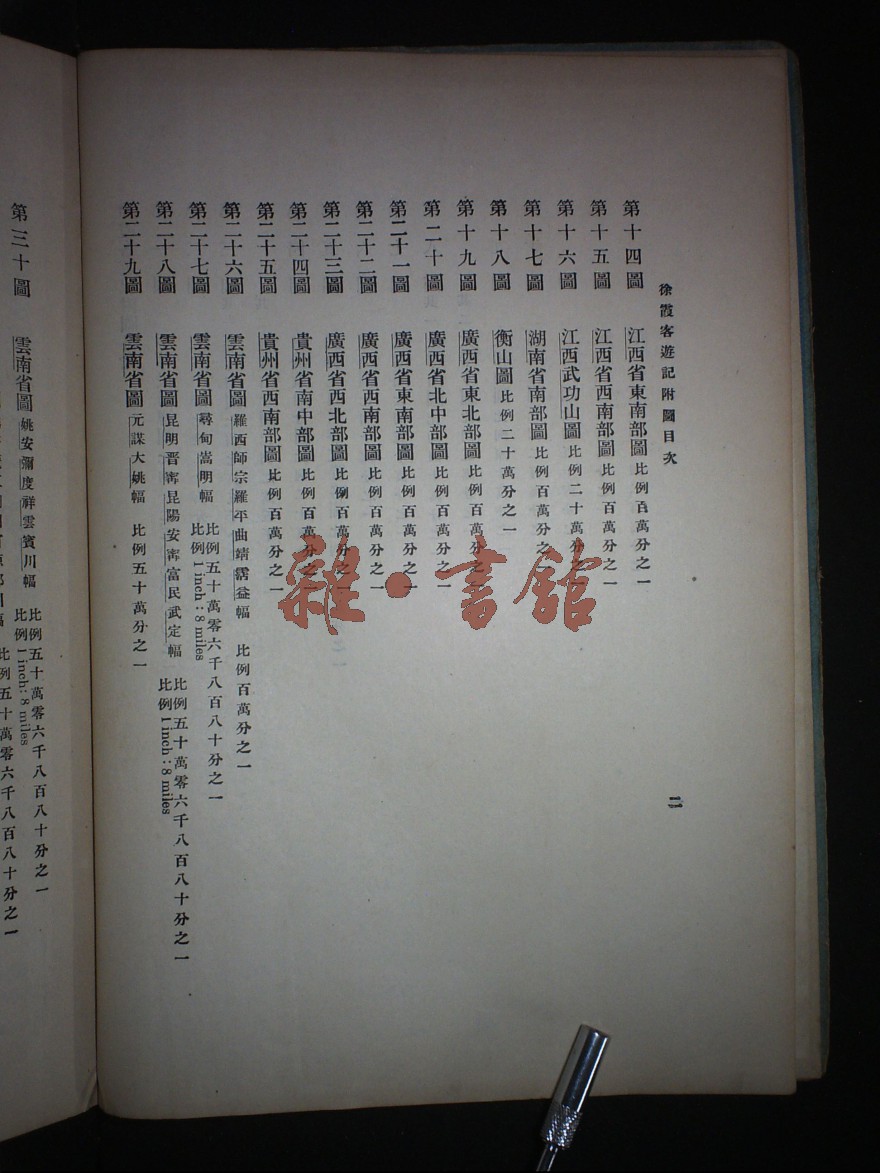 徐霞客遊記附圖目次
第十四圖 江西省東南部圖 比例百萬分之一
第十五圖 江西省西南部圖 比例百萬分之一
第十六圖 江西武功山圖 比例二十萬分之一
第十七圖 湖南省南部圖 比例百萬分之一
第十八圖 衡山圖 比例二十萬分之一
第十九圖 廣西省東北部圖 比例百萬分之一
第二十圖 廣西省北中部圖 比例百萬分之一
第二十一圖 廣西省東南部圖 比例百萬分之一
第二十二圖 廣西省西南部圖 比例百萬分之一
第二十三圖 廣西省西北部圖 比例百萬分之一
第二十四圖 貴州省南中部圖 比例百萬分之一
第二十五圖 貴州省西南部圖 比例百萬分之一
第二十六圖 雲南省圖 羅西師宗羅平曲靖霑益幅 比例百萬分之一
第二十七圖 雲南省圖 尋甸嵩明幅 比例五十萬零六千八百八十分之一
比例 1 inch : 8 miles
第二十八圖 雲南省圖 昆明晋寗昆陽安寗富民武定幅 比例五十萬零六千八百八十分之一
比例 1 inch : 8 miles
第二十九圖 雲南省圖 元謀大姚幅 比例五十萬分之一
二
第三十圖 雲南省圖 姚安彌度祥雲賓川幅 比例五十萬零六千八百八十分之一
比例 1 inch : 8 miles
比例五十萬零六千八百八十分之一
雜·書館